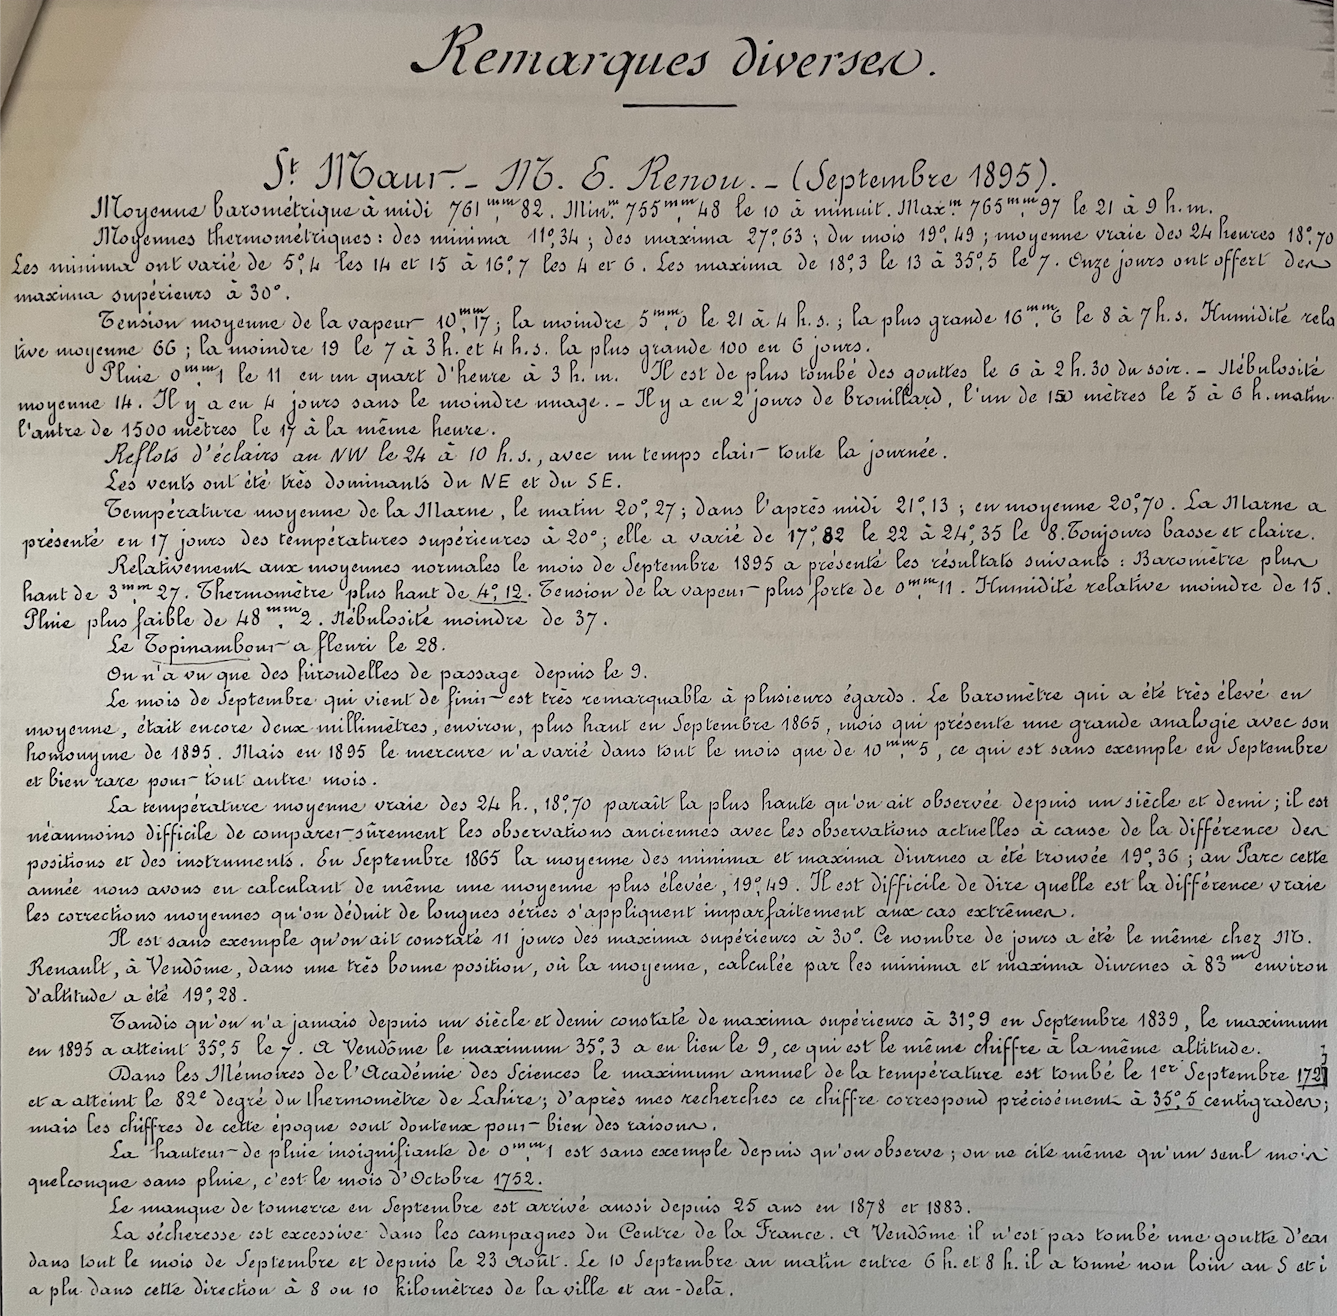 Remarques diverses.
St Maur. - M. E. Renou. - (Septembre 1895).
Moyenne barométrique à midi 761mm,82. Minm. 755mm,48 le 10 à minuit. Maxm. 765mm,97 le 21 à 9 h. m.
Moyennes thermométriques : des minima 11°,34 ; des maxima 27°,63 ; du mois 19°,49 ; moyenne vraie des 24 heures 18°,70
Les minima ont varié de 5°,4 les 14 et 15 à 16°,7 les 4 et 6. Les maxima de 18°,3 le 13 à 35°,5 le 7. Onze jours ont offert des
maxima supérieurs à 30°.
Tension moyenne de la vapeur 10mm,17 ; la moindre 5mm,0 le 21 à 4 h. s. ; la plus grande 16mm,6 le 8 à 7 h. s. Humidité rela
tive moyenne 66 ; la moindre 19 le 7 à 3 h. et 4 h. s. la plus grande 100 en 6 jours.
Pluie 0mm,1 le 11 en un quart d'heure à 3 h. m. Il est de plus tombé des gouttes le 6 à 2 h. 30 du soir. - Nébulosité
moyenne 14. Il y a eu 4 jours sans le moindre nuage. - Il y a eu 2 jours de brouillard, l'un de 150 mètres le 5 à 6 h. matin
l'autre de 1500 mètres le 17 à la même heure.
Reflets d'éclairs au NW le 24 à 10 h. s., avec un temps clair toute la journée.
Les vents ont été très dominants du NE et du SE.
Température moyenne de la Marne, le matin 20°,27 ; dans l'après midi 21°,13 ; en moyenne 20°,70. La Marne a
présenté en 17 jours des températures supérieures à 20° ; elle a varié de 17°,82 le 22 à 24°,35 le 8. Toujours basse et claire.
Relativement aux moyennes normales le mois de Septembre 1895 a présenté les résultats suivants : Baromètre plus
haut de 3mm,27. Thermomètre plus haut de 4°,12. Tension de la vapeur plus forte de 0mm,11. Humidité relative moindre de 15.
Pluie plus faible de 48mm,2. Nébulosité moindre de 37.
Le Topinambour a fleuri le 28.
On n'a vu que des hirondelles de passage depuis le 9.
Le mois de Septembre qui vient de finir est très remarquable à plusieurs égards. Le baromètre qui a été très élevé en
moyenne, était encore deux millimètres, environ, plus haut en Septembre 1865, mois qui présente une grande analogie avec son
homonyme de 1895. Mais en 1895 le mercure n'a varié dans tout le mois que de 10mm,5, ce qui est sans exemple en Septembre
et bien rare pour tout autre mois.
La température moyenne vraie des 24 h., 18°,70 paraît la plus haute qu'on ait observée depuis un siècle et demi ; il est
néanmoins difficile de comparer sûrement les observations anciennes avec les observations actuelles à cause de la différence des
positions et des instruments. En Septembre 1865 la moyenne des minima et maxima diurnes a été trouvée 19°,36 ; au Parc cette
année nous avons en calculant de même une moyenne plus élevée, 19°,49. Il est difficile de dire quelle est la différence vraie
les corrections moyennes qu'on déduit de longues séries s'appliquent imparfaitement aux cas extrêmes.
Il est sans exemple qu'on ait constaté 11 jours des maxima supérieurs à 30°. Ce nombre de jours a été le même chez M.
Renault, à Vendôme, dans une très bonne position, où la moyenne, calculée par les minima et maxima diurnes à 83m environ
d'altitude a été 19°,28.
Tandis qu'on n'a jamais depuis un siècle et demi constaté de maxima supérieurs à 31°,9 en Septembre 1839, le maximum
en 1895 a atteint 35°,5 le 7. A Vendôme le maximum 35°,3 a eu lieu le 9, ce qui est le même chiffre à la même altitude.
Dans les Mémoires de l'Académie des Sciences le maximum annuel de la température est tombé le 1er Septembre
et a atteint le 82e degré du thermomètre de Lahire ; d'après mes recherches ce chiffre correspond précisément à 35°,5 centigrades ;
mais les chiffres de cette époque sont douteux pour bien des raisons.
La hauteur de pluie insignifiante de 0mm,1 est sans exemple depuis qu'on observe ; on ne cite même qu'un seul mois
quelconque sans pluie, c'est le mois d'Octobre 1752.
Le manque de tonnerre en Septembre est arrivé aussi depuis 25 ans en 1878 et 1883.
La sécheresse est excessive dans les campagnes du Centre de la France. A Vendôme il n'est pas tombé une goutte d'eau
dans tout le mois de Septembre et depuis le 23 Août. Le 10 Septembre au matin entre 6 h. et 8 h. il a tonné non loin au S et i
a plu dans cette direction à 8 ou 10 kilomètres de la ville et au-delà.